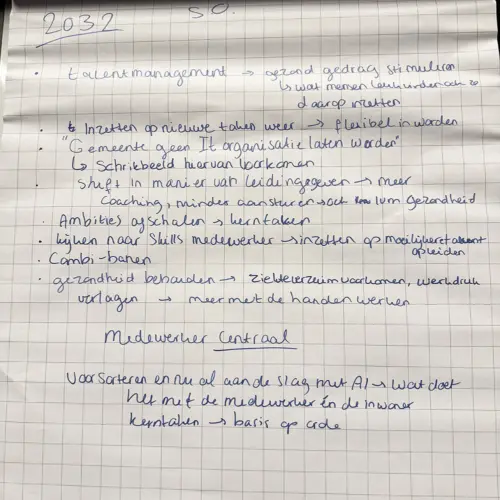 2032
S.O.
• talentmanagement → gezond gedrag stimuleren
↳ wat mensen leuk vinden ook zo
daarop inzetten
• Inzetten op nieuwe taken weer → flexibel in worden
• "Gemeente geen It organisatie laten worden"
↳ Schrikbeeld hiervan voorkomen
• Shift in manier van leidinggeven → meer
Coaching, minder aansturen → ook ivm gezondheid
• Ambities afschalen → kerntaken
• kijken naar skills medewerker → inzetten op moeilijkere
opleiden
• Combi-banen
• gezondheid behouden → ziekteverzuim voorkomen, werkdruk
verlagen → meer met de handen werken
Medewerker Centraal
Voorsorteren en nu al aan de slag met AI → wat doet
het met de medewerker én de inwoner
kerntaken → basis op orde